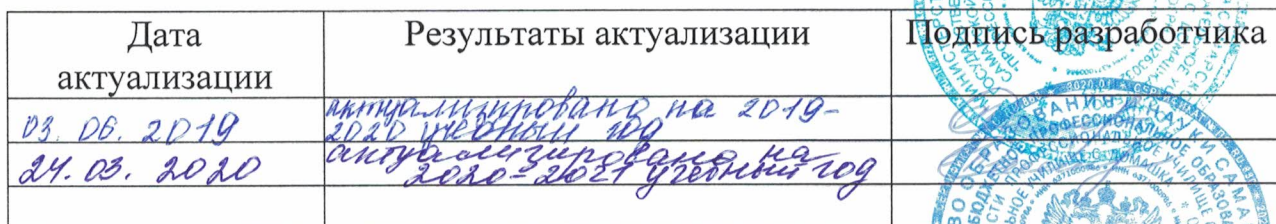 Дата
актуализации
Результаты актуализации
Подпись разработчика
03. 06. 2019
актуализировано на 2019-
2020 учебный год
24. 03. 2020
актуализировано на
2020-2021 учебный год